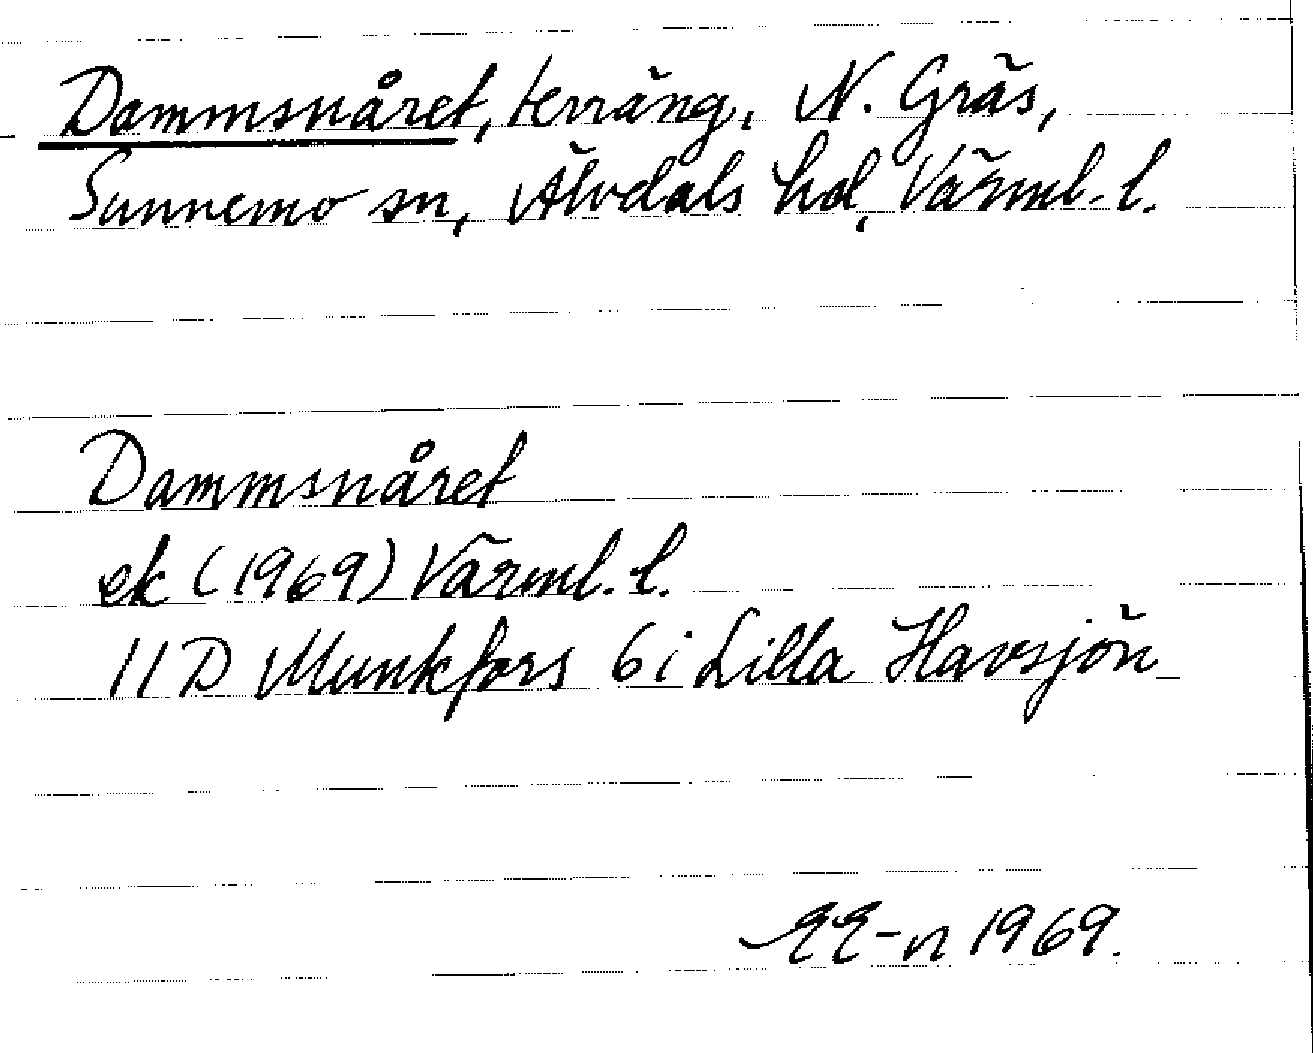 Dammsnåret, terräng, N. Gräs,
Sunnemo sn, Älvdals hd, Värml. l.
Dammsnåret
ek (1969) Värml. l.
11 D Munkfors 6 i Lilla Havsjön
EE-n 1969.